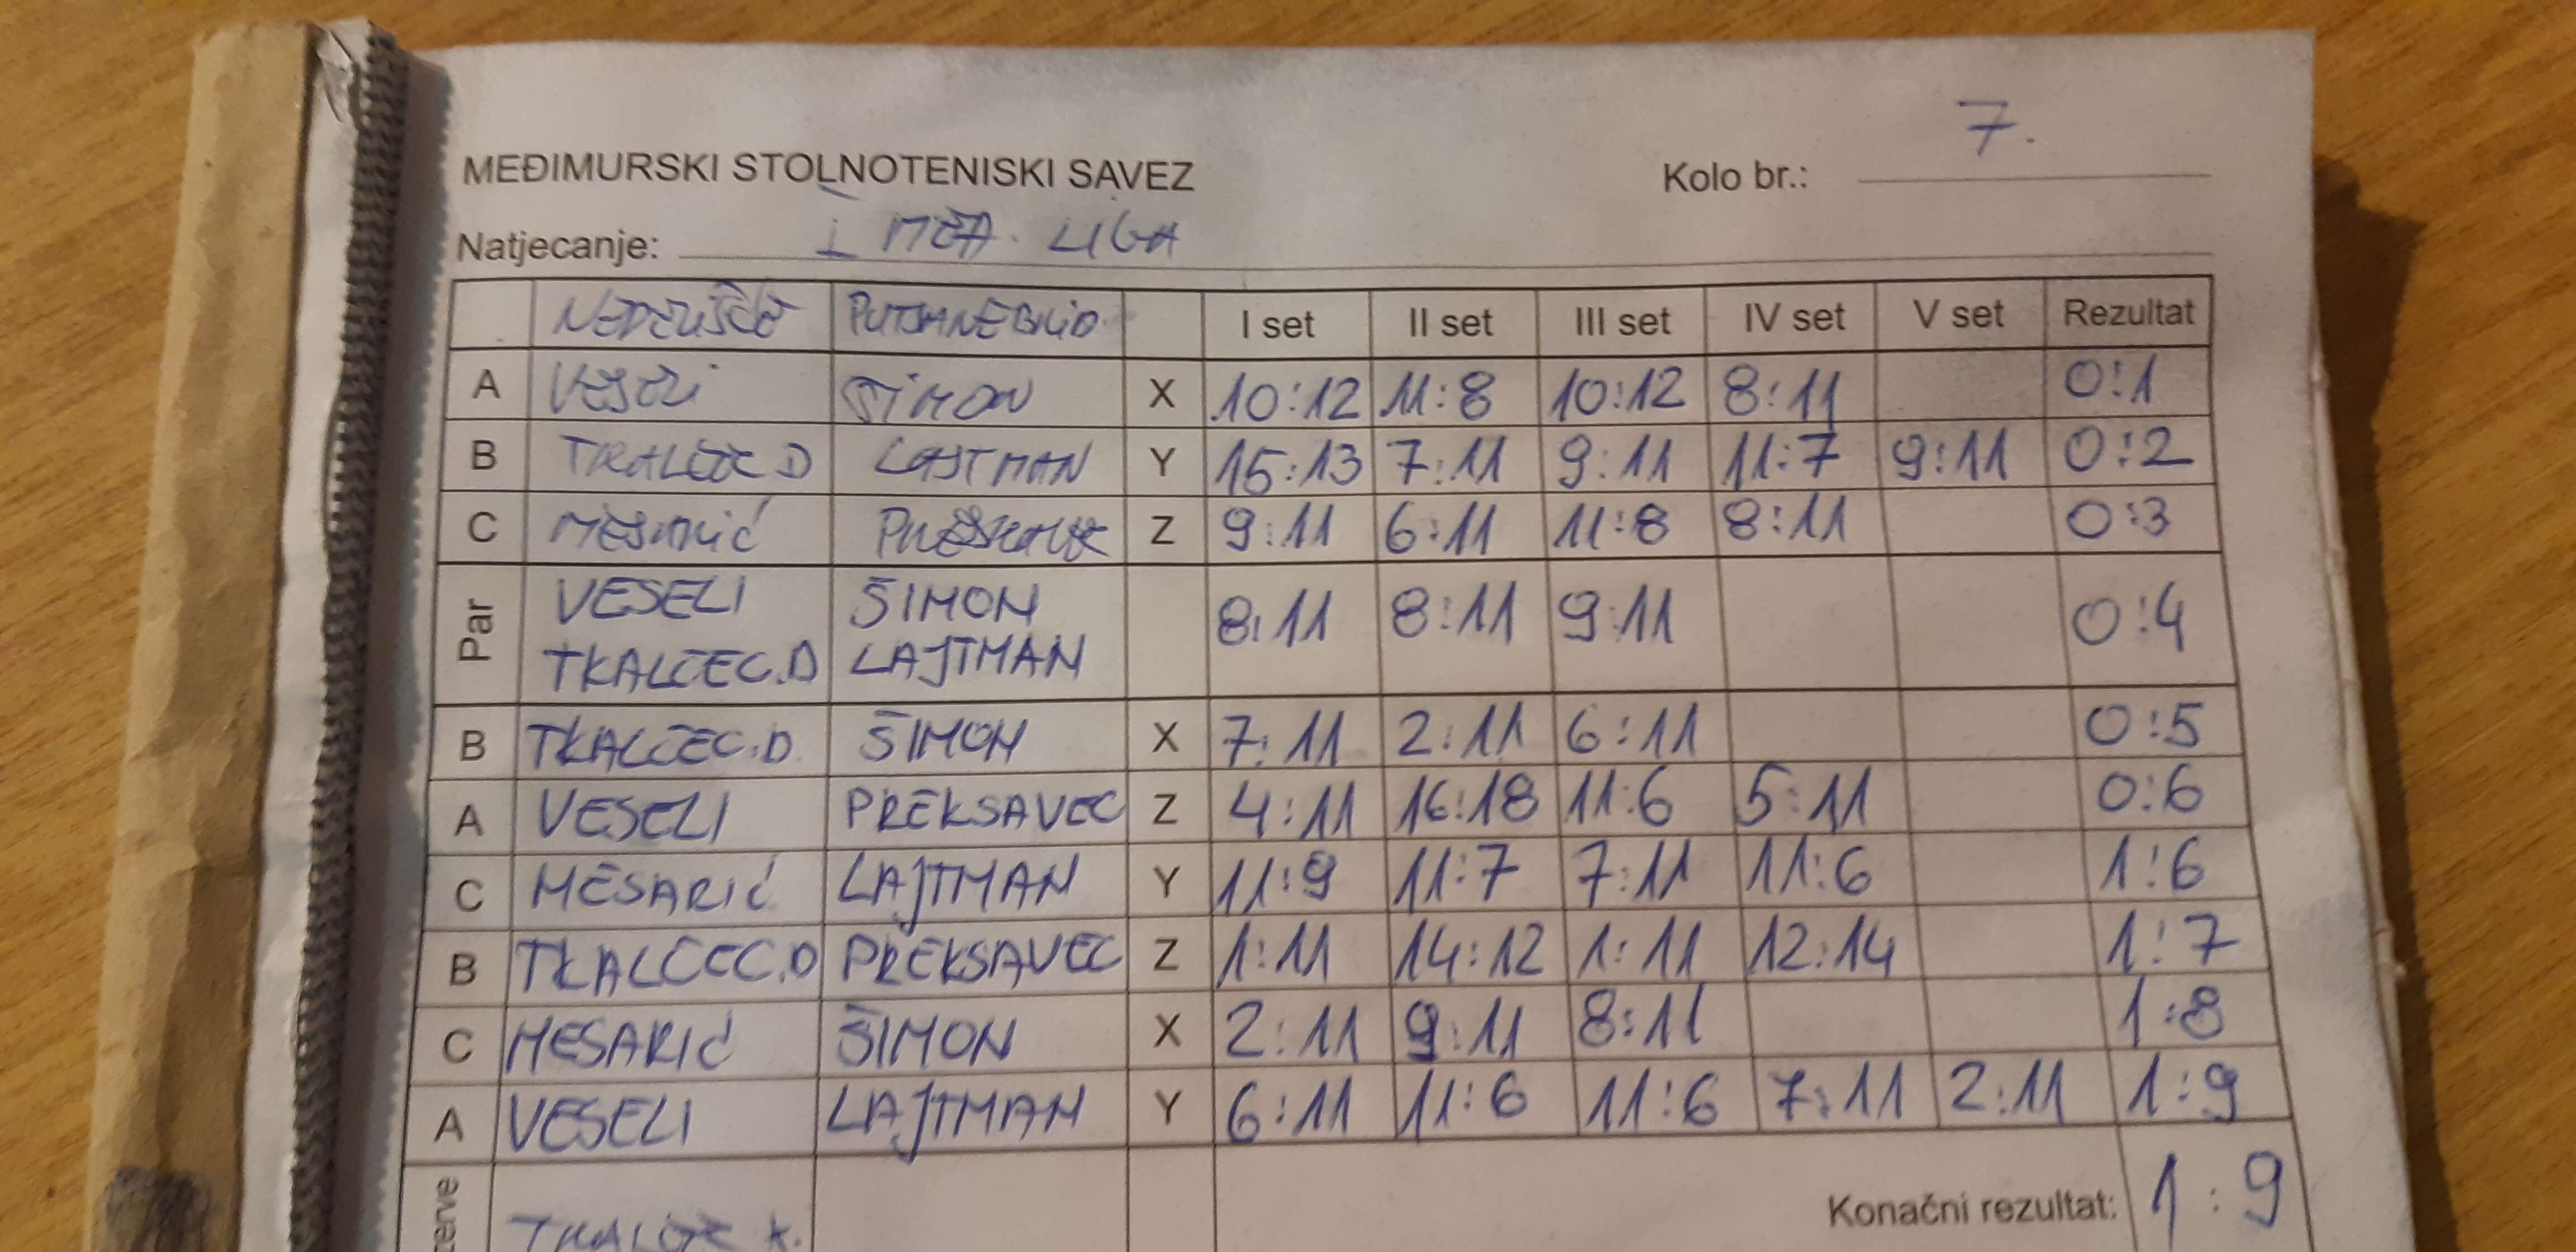 MEĐIMURSKI STOLNOTENISKI SAVEZ
Kolo br.: 7.
Natjecanje: I MEĐ. LIGA
NEDELIŠĆE PUTJANE I set II set III set IV set V set Rezultat
A VESELI ŠIMON X 10:12 11:8 10:12 8:11 0:1
B TKALČEC D LAJTMAN Y 15:13 7:11 9:11 11:7 9:11 0:2
C MESARIĆ Z 9:11 6:11 11:8 8:11 0:3
Par VESELI ŠIMON 8:11 8:11 9:11 0:4
TKALČEC.D LAJTMAN
B TKALČEC.D. ŠIMON X 7:11 2:11 6:11 0:5
A VESELI PREKSAVEC Z 4:11 16:18 11:6 5:11 0:6
C MESARIĆ LAJTMAN Y 11:9 11:7 7:11 11:6 1:6
B TKALČEC.D PREKSAVEC Z 1:11 14:12 1:11 12:14 1:7
C MESARIĆ ŠIMON X 2:11 9:11 8:11 1:8
A VESELI LAJTMAN Y 6:11 11:6 11:6 7:11 2:11 1:9
Konačni rezultat: 1:9
erve TKALČEC K.